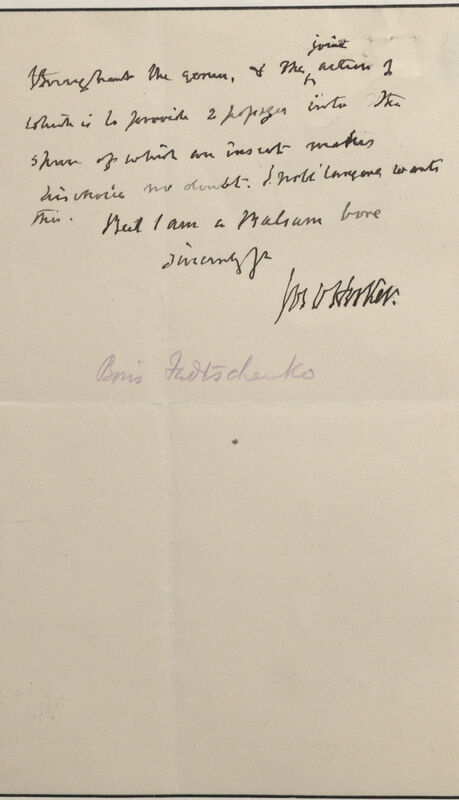 throughout the genus, & the joint action of
which is to provide 2 passages into the
spur of which an insect makes
his choice no doubt.
this. But I am a Balsam bore
Sincerely yr
Jos D Hooker.
Boris Fedtschenko